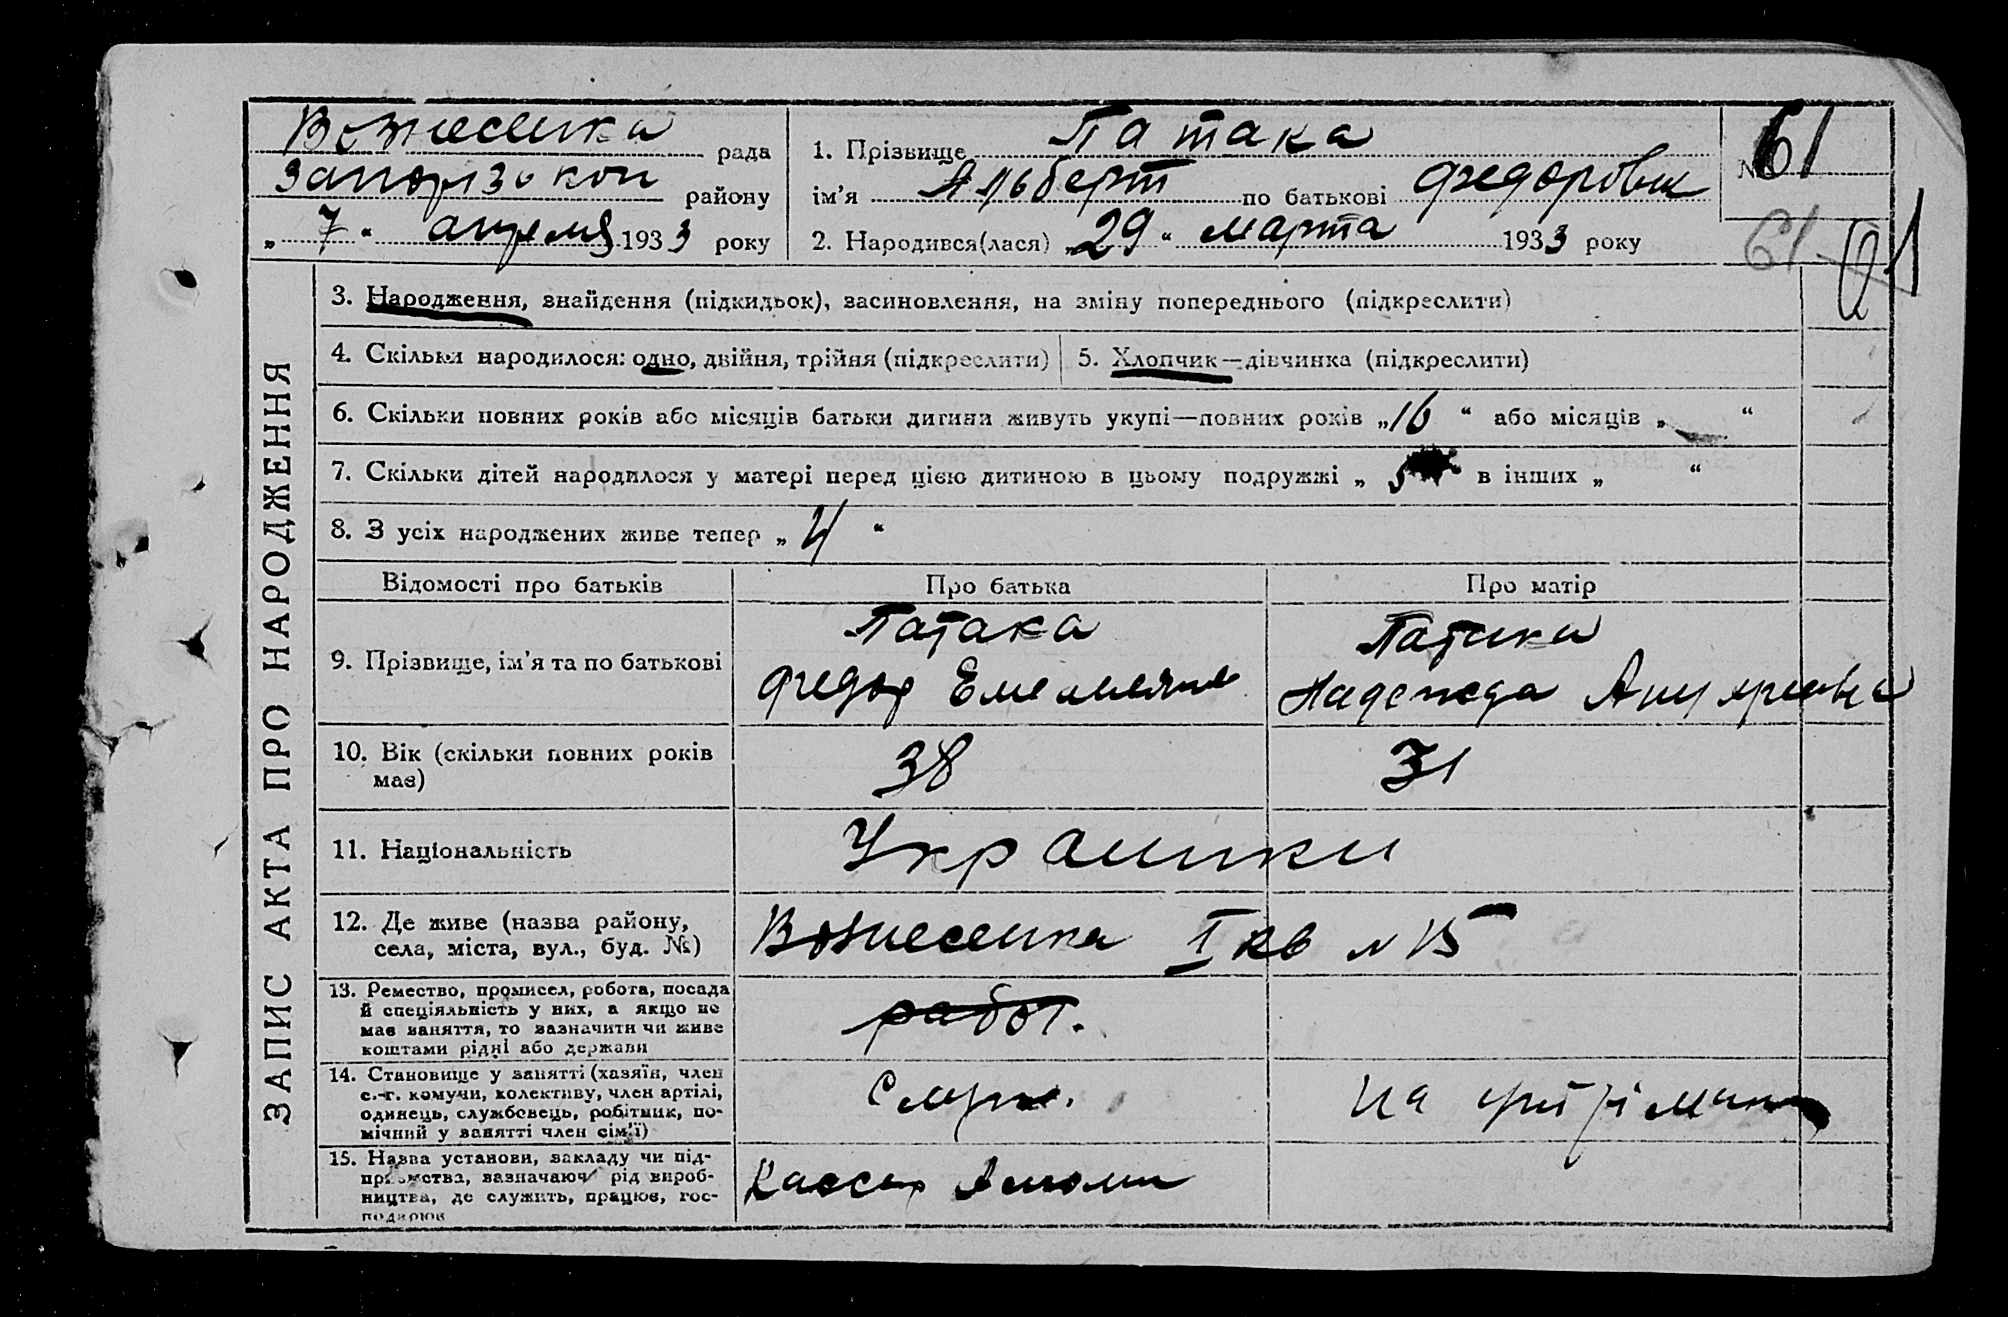 ЗАПИС АКТА ПРО НАРОДЖЕННЯ
Вознесенка рада
Запорізької району
„ 7 “ апреля 1933 року
1. Прізвище Патака
ім’я Альберт по батькові Федорович
2. Народився(лася) „ 29 “ марта 1933 року
№ 61
61
3. Народження, знайдення (підкидьок), засиновлення, на зміну попереднього (підкреслити)
4. Скільки народилося: одно, двійня, трійня (підкреслити)
5. Хлопчик—дівчинка (підкреслити)
6. Скільки повних років або місяців батьки дитини живуть укупі—повних років „ 16 “ або місяців „ “
7. Скільки дітей народилося у матері перед цією дитиною в цьому подружжі „ 5 в інших „ “
8. З усіх народжених живе тепер „ 4 “
Відомості про батьків Про батька Про матір
9. Прізвище, ім’я та по батькові
Патака
Федор Емельянов
Патака
Надежда
10. Вік (скільки повних років
має)
38 31
11. Національність
Украинки
12. Де живе (назва району,
села, міста, вул., буд. №)
Вознесенка I кв N 15
13. Ремество, промисел, робота, посада
й спеціяльність у них, а якщо не
має заняття, то зазначити чи живе
коштами рідні або держави
работ.
14. Становище у занятті (хазяїн, член
с.-г. комуни, колективу, член артілі,
одинець, службовець, робітник, по-
мічний у занятті член сім’ї)
Служ.
на
15. Назва установи, закладу чи під-
приємства, зазначаючи рід вироб-
ництва, де служить, працює, гос-
подарює